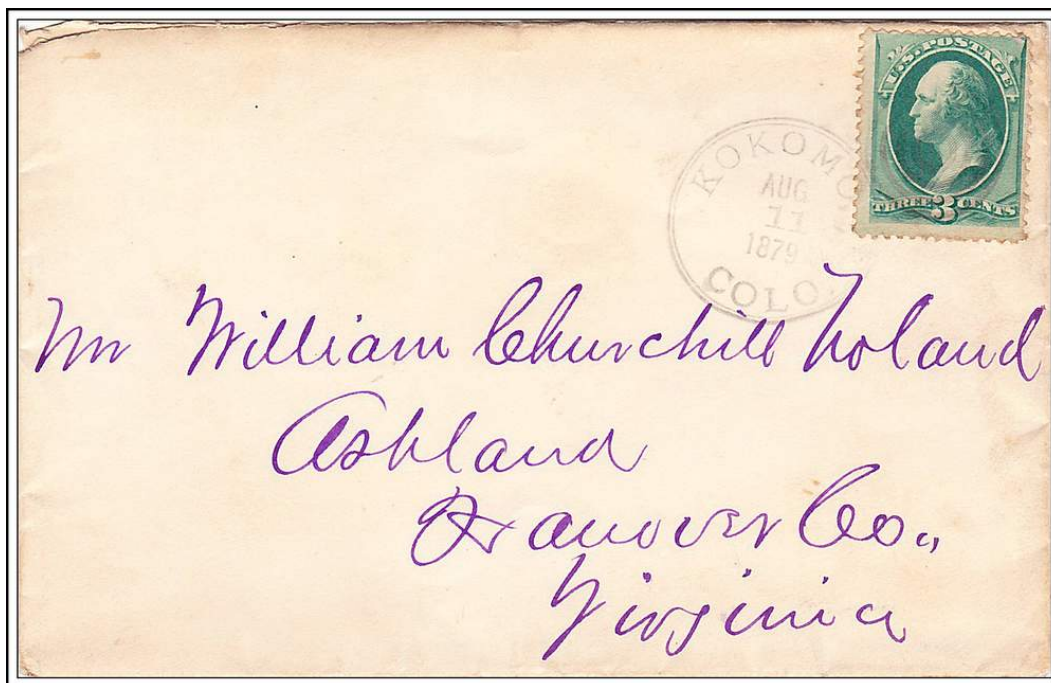 U.S. POSTAGE
THREE 3 CENTS
KOKOMO
AUG
11
1879
COLO.
Mr William Churchill Noland
Ashland
Hanover Co.,
Virginia